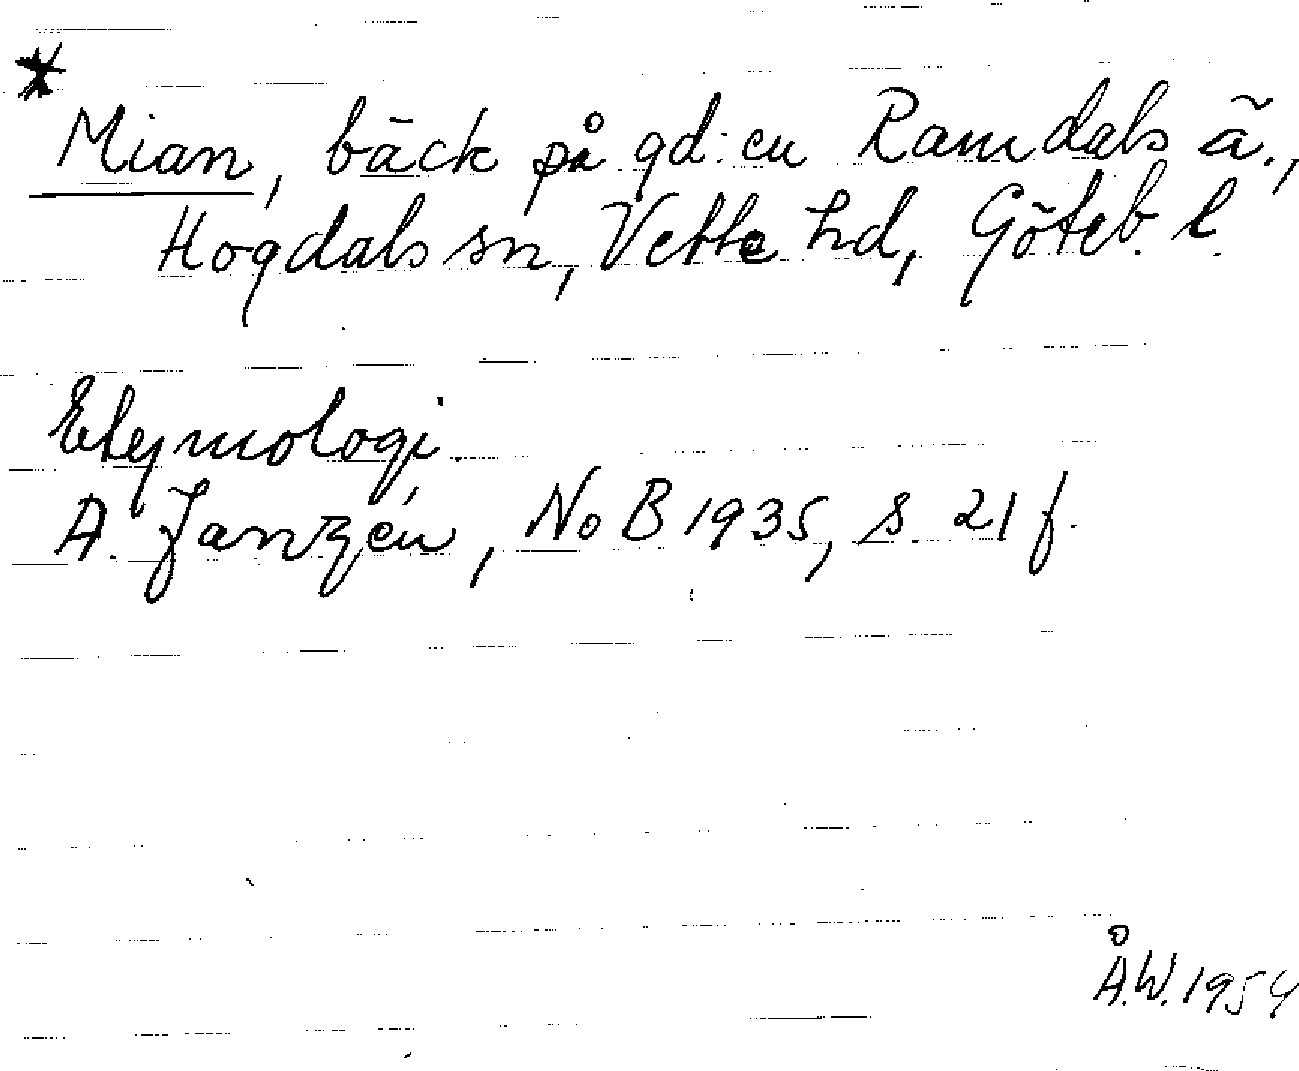 *
Mian, bäck på gd:en Ramdals ä.,
Hogdals sn, Vette hd, Göteb. l.
Etymologi
A. Janzén, NoB 1935, s. 21 f.
Å.W. 1954